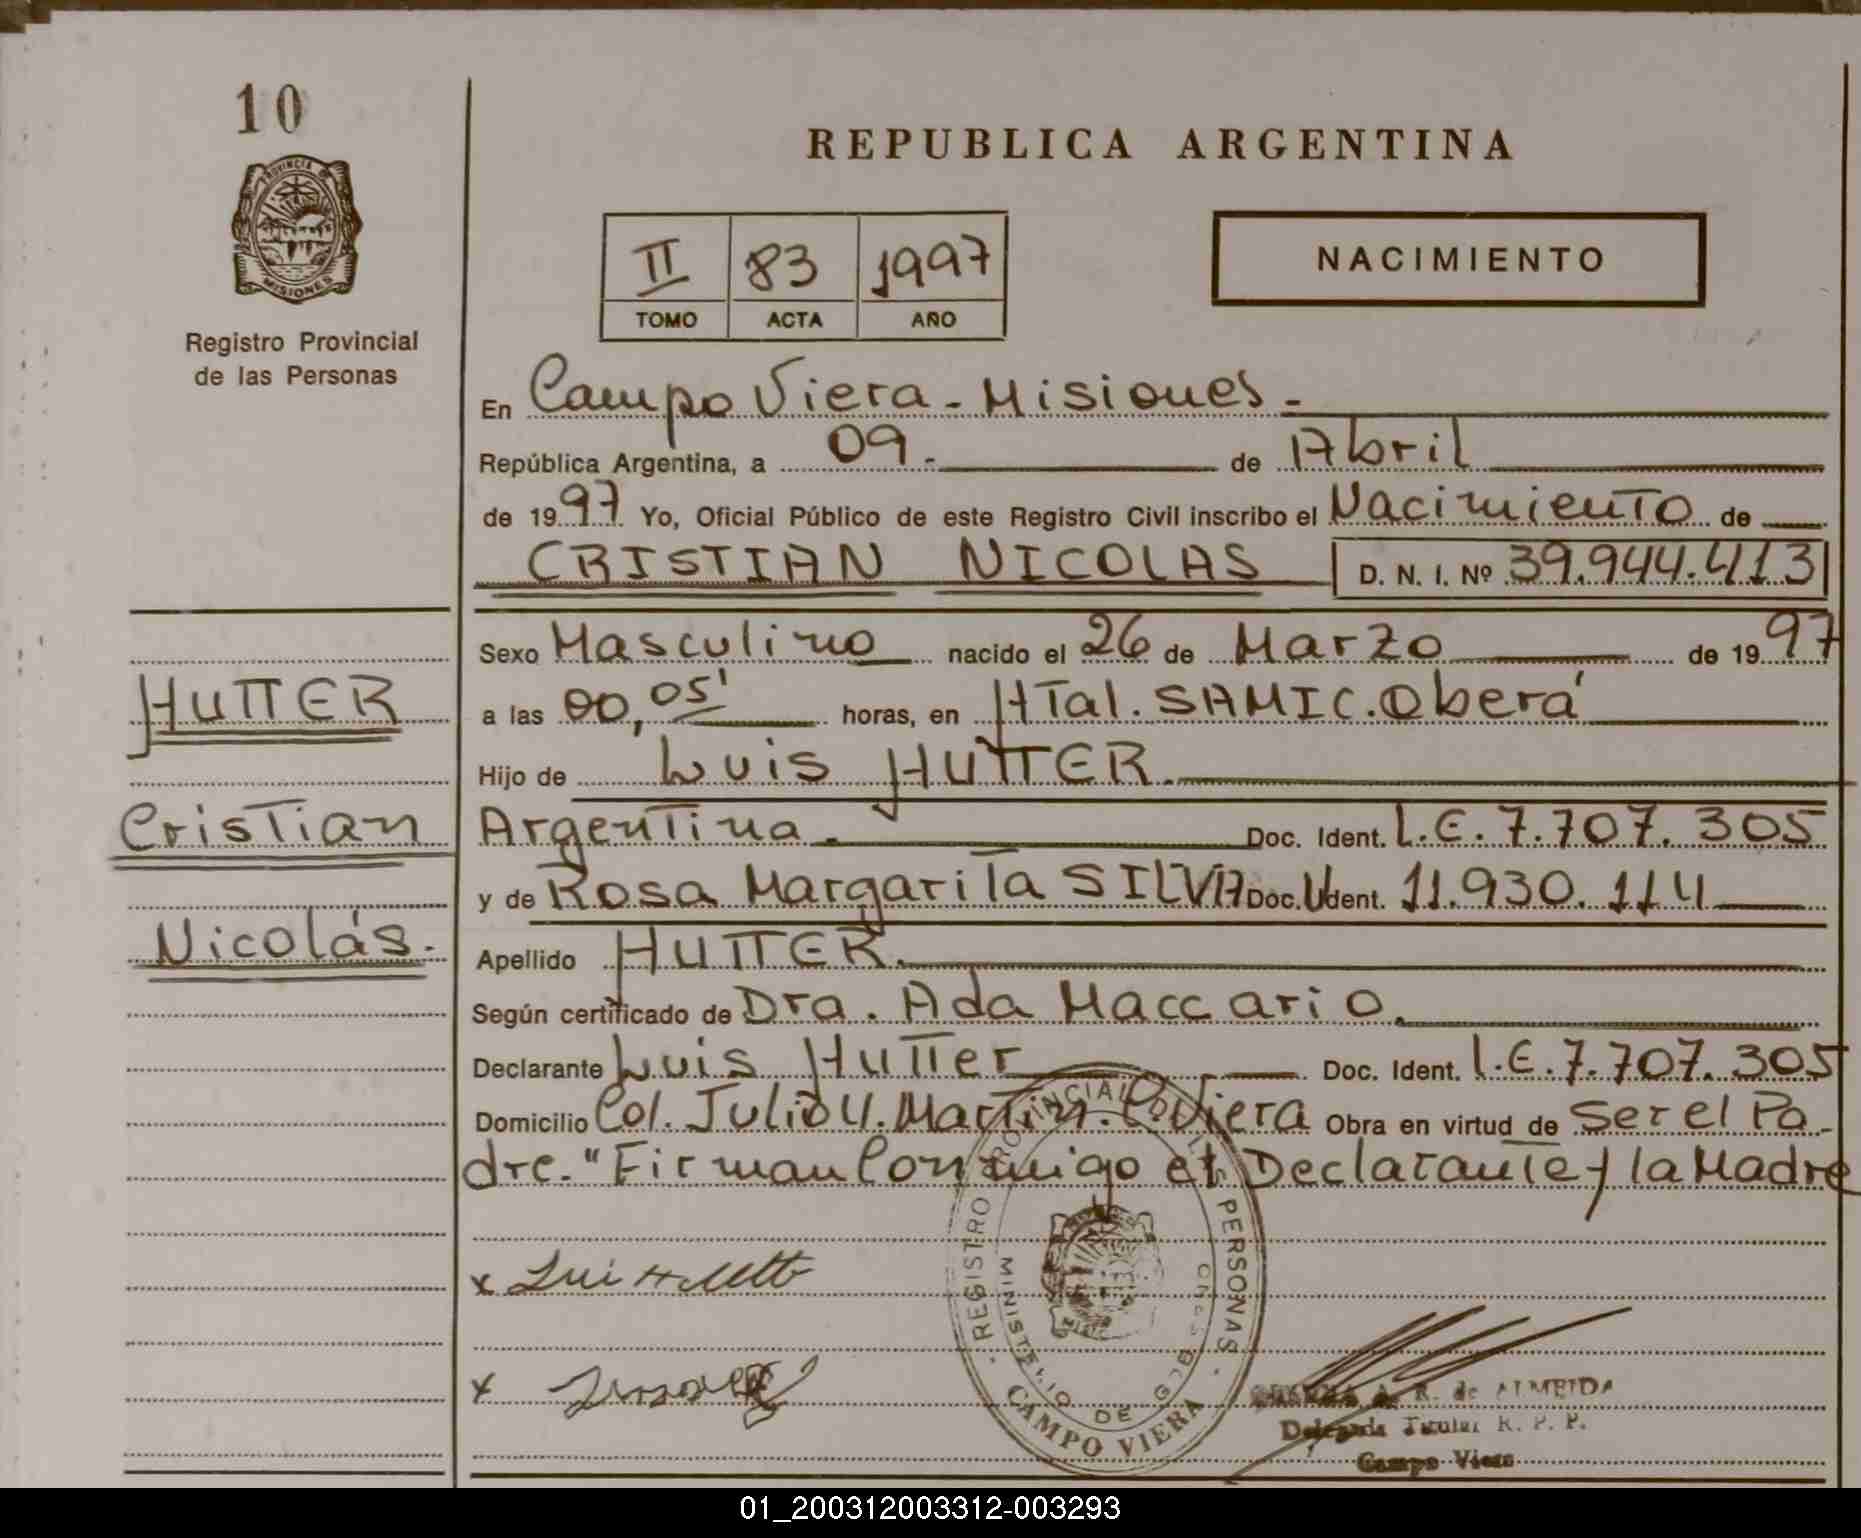 10
PROVINCIA DE
MISIONES
Registro Provincial
de las Personas
HUTTER
Cristian
Nicolás.
REPUBLICA ARGENTINA
II 83 1997
TOMO ACTA AÑO
NACIMIENTO
En Campo Viera - Misiones -
República Argentina, a 09.- de Abril
de 1997 Yo, Oficial Público de este Registro Civil inscribo el Nacimiento de
CRISTIAN NICOLAS D. N. I. Nº 39.944.413
Sexo Masculino nacido el 26 de Marzo de 1997
a las 00,05' horas, en HTal. SAMIC. Oberá
Hijo de Luis HUTTER.
Argentina. Doc. Ident. L.E. 7.707.305
y de Rosa Margarita SILVA Doc. Ident. 11.930.114
Apellido HUTTER.
Según certificado de Dra. Ada Maccario.
Declarante Luis Hutter Doc. Ident. L.E. 7.707.305
Domicilio Col. Julio U. Martin. C. Viera Obra en virtud de Ser el Pa-
dre. "Firman Conmigo el Declarante y la Madre
x Luis
x
REGISTRO PROVINCIAL DE LAS PERSONAS
MINISTERIO DE GOB
CAMPO VIERA
A. R. de ALMEIDA
Delegada Titular R. P. P.
Campo Viera
01_200312003312-003293